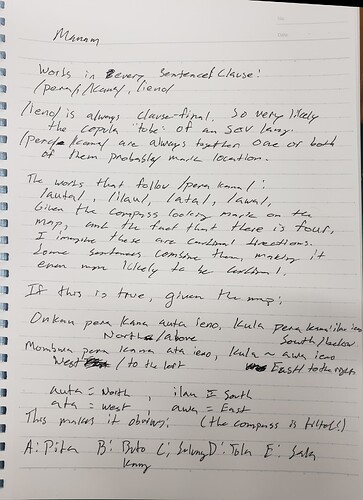 Manam
Words in every sentence/clause:
/pera/, /kana/, /ieno/
/ieno/ is always clause-final. So very likely
the copula 'to be' of an SOV lang.
/pera/ /kana/ are always together. One or both
of them probably mark location.
The words that follow /pera kana/:
/auta/, /ilau/, /ata/, /awa/,
Given the compass looking mark on the
map, and the fact that there is four,
I imagine these are cardinal directions.
Some sentences combine them, making it
even more likely to be cardinal.
If this is true, given the map:
Onkau pera kana auta ieno, kula pera kana ilau ieno
North/above South/below
Mombwa pera kana ata ieno, kula ~ awa ieno
West / to the left East/to the right
auta = North, ilau = South
ata = west awa = East
This makes it obvious. (the compass is tilted!)
A: Pita B: Buto C: Sulung D: Tola E: Sala